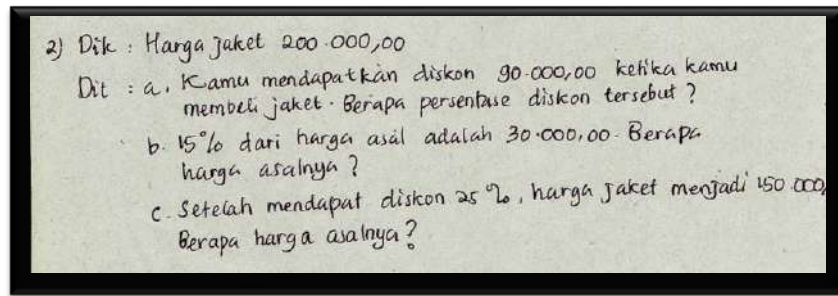 2) Dik : Harga jaket 200.000,00
Dit : a. Kamu mendapatkan diskon 90.000,00 ketika kamu
membeli jaket. Berapa persentase diskon tersebut ?
b. 15% dari harga asal adalah 30.000,00. Berapa
harga asalnya ?
c. Setelah mendapat diskon 25 %, harga jaket menjadi 150.000,
Berapa harga asalnya ?